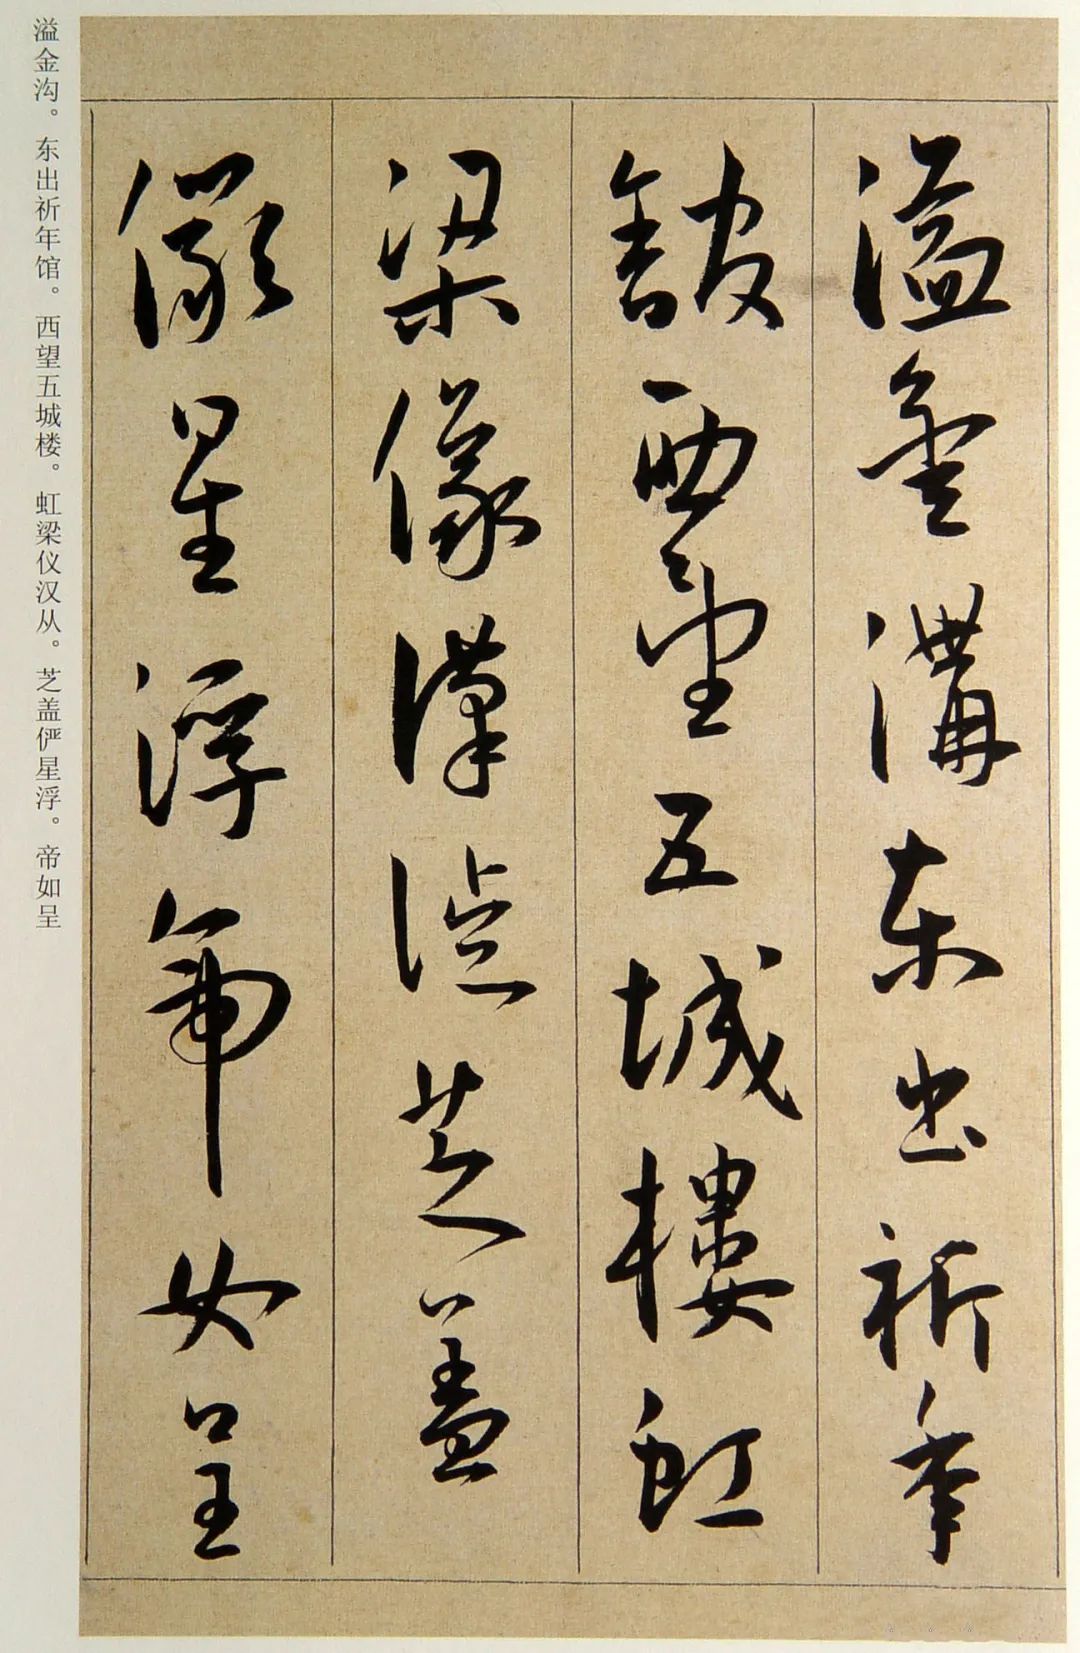 溢金溝東出祈年
館西望五城樓虹
梁儀漢從芝蓋
儼星浮帝如呈
溢金沟。东出祈年馆。西望五城楼。虹梁仪汉从。芝盖俨星浮。帝如呈